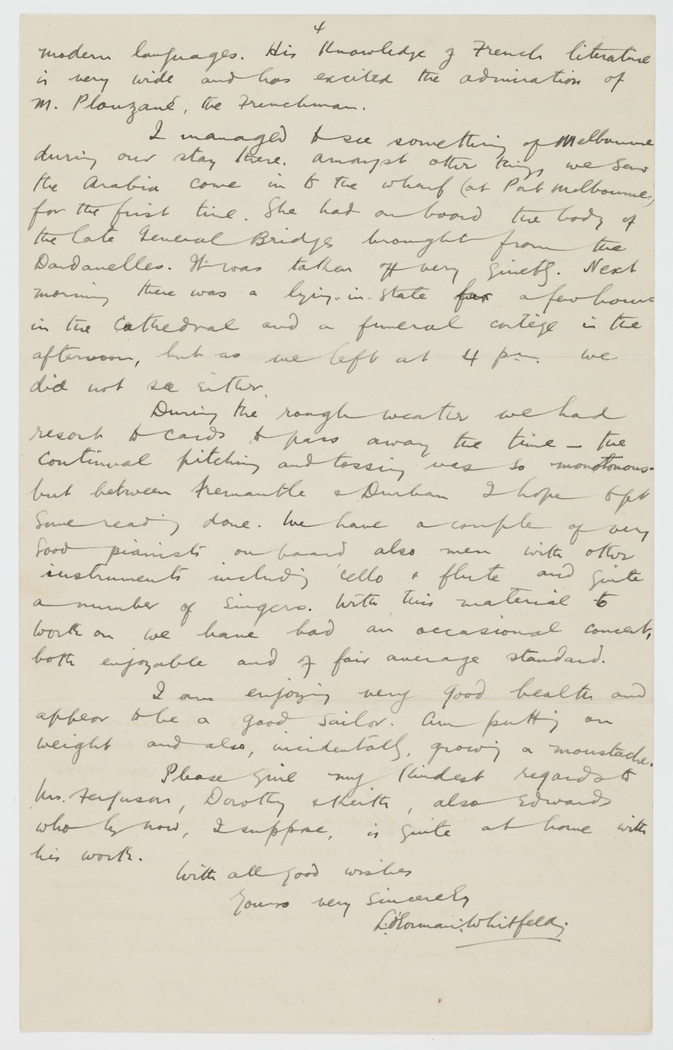 4
modern languages. His knowledge of French literature
is very wide and has excited the admiration of
M. Plouzané, the Frenchman.
I managed to see something of Melbourne
during our stay there. Amongst other things we saw
the Arabia come in to the wharf (at Port Melbourne,)
for the first time. She had on board the body of
the late General Bridges brought from the
Dardanelles. It was taken off very quietly. Next
morning there was a lying-in-state for a few hours
in the Cathedral and a funeral cortège in the
afternoon, but as we left at 4 pm. we
did not see either.
During the rough weather we had
resort to cards to pass away the time – the
continual pitching and tossing was so monotonous.
but between Fremantle & Durban I hope to get
some reading done. We have a couple of very
good pianists on board also men with other
instruments including 'cello & flute and quite
a number of singers. With this material to
work on we have had an occasional concert,
both enjoyable and of fair average standard.
I am enjoying very good health and
appear to be a good sailor. Am putting on
weight and also, incidentally, growing a moustache.
Please give my kindest regards to
Mrs. Ferguson, Dorothy & Keith, also Edwards
who by now, I suppose, is quite at home with
his work.
With all good wishes
Yours very sincerely
Whitfeld.